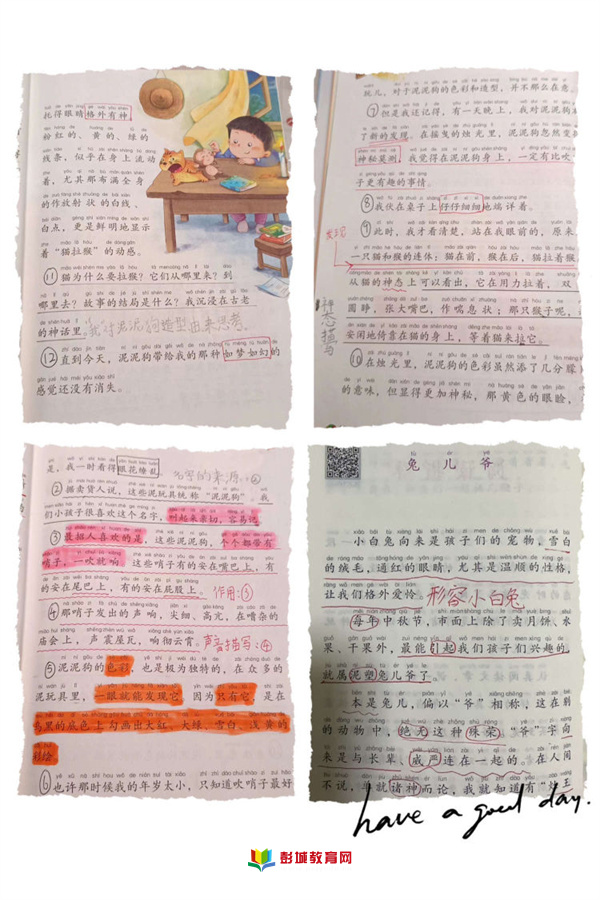 托得眼睛格外有神
粉红的、黄的、绿的
线条，似乎在身上流动
着，尤其那布满全身
的作放射状的白线、
白点，更是鲜明地显示
着“猫拉猴”的动感。
⑪猫为什么要拉猴？它们从哪里来？到
哪里去？故事的结局是什么？我沉浸在古老
的神话里
⑫直到今天，泥泥狗带给我的那种如梦如幻的
感觉还没有消失。
玩儿，对于泥泥狗的色彩和造型，并不那么在意。
⑦但是我还记得，有一天晚上，我对泥泥狗
了新的发现。在摇曳的烛光里，泥泥狗忽然变
神秘莫测。我觉得在泥泥狗身上，一定有比吹
子更有趣的事情。
⑧我伏在桌子上仔仔细细地端详着。
发现
⑨此时，我才看清楚，站在我眼前的，原来
一只猫和猴的连体：猫在前，猴在后，猫拉着猴
从猫的神态上可以看出，它在用力拉着，双
圆睁，张大嘴巴，作喘息状；那只猴子呢，
安闲地倚靠在猫的身上，等着猫来拉它。
神态描写
⑩在烛光里，泥泥狗的色彩虽然添了几分朦
的意味，但显得更加神秘，那黄色的眼睑，
是，我一时看得眼花缭乱
名字的来源：②
②据卖货人说，这些泥玩具统称“泥泥狗”。我
们小孩子很喜欢这个名字，叫起来亲切，容易记
③最招人喜欢的是，这些泥泥狗，个个都带有
哨子，一吹就响。这些哨子有的安在嘴巴上，有
的安在尾巴上，有的安在屁股上。
作用：③
④那哨子发出的声响，尖细、高亢，在嘈杂的
庙会上，声震屋瓦，响彻云霄。
声音描写：④
⑤泥泥狗的色彩，也是极为独特的，在众多的
泥玩具里，一眼就能发现它，因为只有它，是在
乌黑的底色上勾画出大红、大绿、雪白、浅黄的
彩绘
⑥也许那时候我的年岁太小，只知道吹哨子最好
兔儿爷
小白兔向来是孩子们的宠物，雪白
的绒毛，通红的眼睛，尤其是温顺的性格，
让我们格外爱怜
形容小白兔
每年中秋节，市面上除了卖月饼、水
果、干果外，最能引起我们孩子们兴趣的，
就属泥塑兔儿爷了。
本是兔儿，偏以“爷”相称，这在别
的动物中，绝无这种殊荣。“爷”字向
来是与长辈、威严连在一起的。在人间
不说，单就诸神而论，我就知道有“灶王
have a good day.
彭城教育网